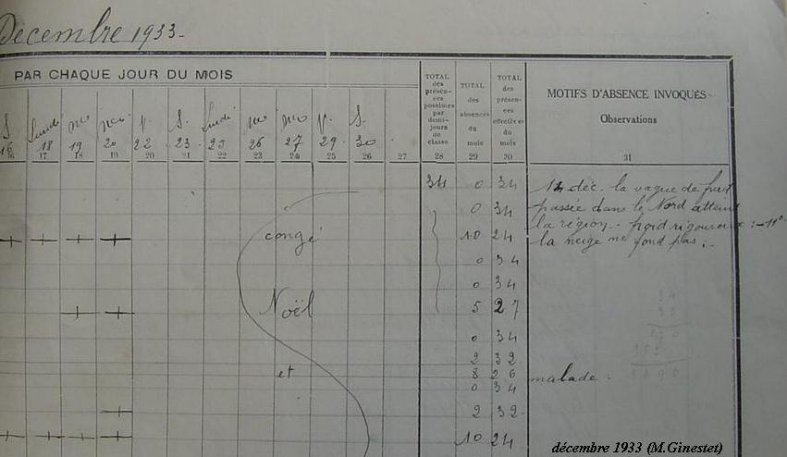 Décembre 1933-
PAR CHAQUE JOUR DU MOIS
TOTAL des présen- ces possibles par demi- jours de classe
TOTAL des absences du mois
TOTAL des présen- ces effectives du mois
MOTIFS D'ABSENCE INVOQUÉS
Observations
S. Lundi S. Lundi S.
16 18 19 20 22 23 25 26 27 29 30
16 17 18 19 20 21 22 23 24 25 26 27 28 29 30 31
34 0 34 14 déc. la vague de froid
0 34 passée dans le Nord atteint
congé 10 24 la région - froid rigoureux : -11°
la neige ne fond pas.
0 34
0 34
Noël 5 27
0 34
2 32
et 8 26 malade.
0 34
2 32
10 24
décembre 1933 (M.Ginestet)